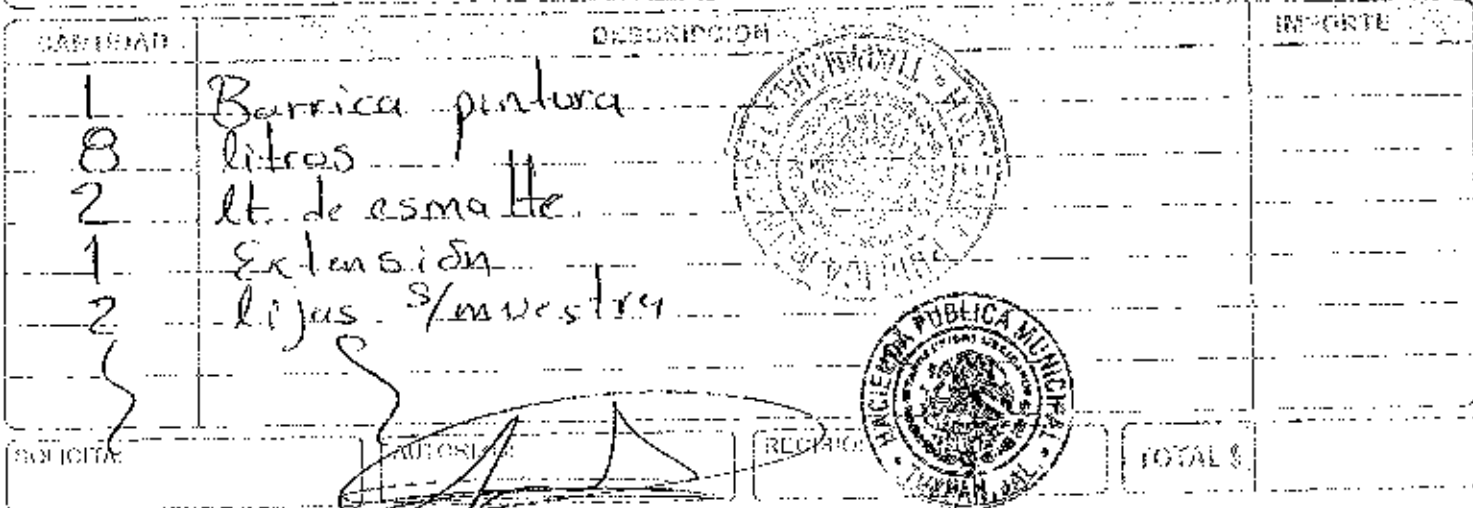 CANTIDAD DESCRIPCION IMPORTE
1 Barrica pintura
8 litros
2 lt. de esmalte
1 Extensión
2 lijas s/muestra
SOLICITA AUTORIZA RECIBIO TOTAL $
HACIENDA PUBLICA MUNICIPAL
TUXPAN, JAL.